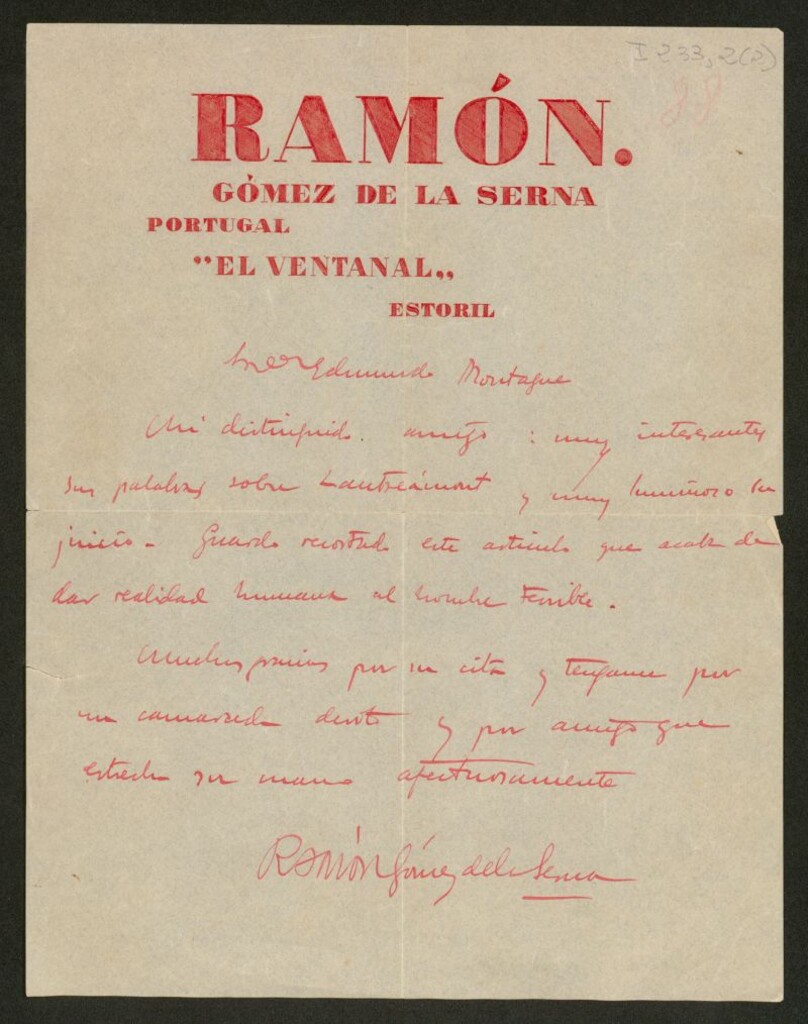 I 233, 2(2)
RAMÓN.
GÓMEZ DE LA SERNA
PORTUGAL
"EL VENTANAL„
ESTORIL
Edmundo Montagne
Mi distinguido amigo: muy interesantes
sus palabras sobre Lautréamont y muy luminoso su
juicio - Guardo recortado este articulo que acaba de
dar realidad humana al hombre terrible.
Muchas gracias por su cita y tengame por
un camarada devoto y por amigo que
estrecha su mano afectuosamente
RAMÓN Gómez de la Serna